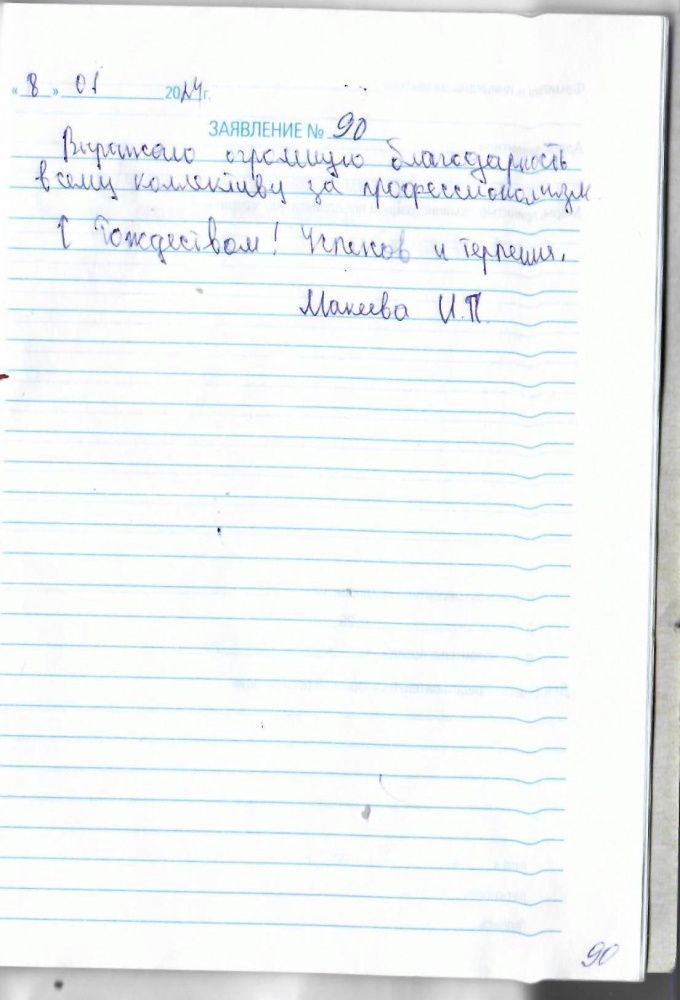 «8» 01 2024 г.
ЗАЯВЛЕНИЕ № 90
Выражаю огромную благодарность
всему коллективу за профессионализм.
С Рождеством! Успехов и терпения.
Макеева И.П.
90